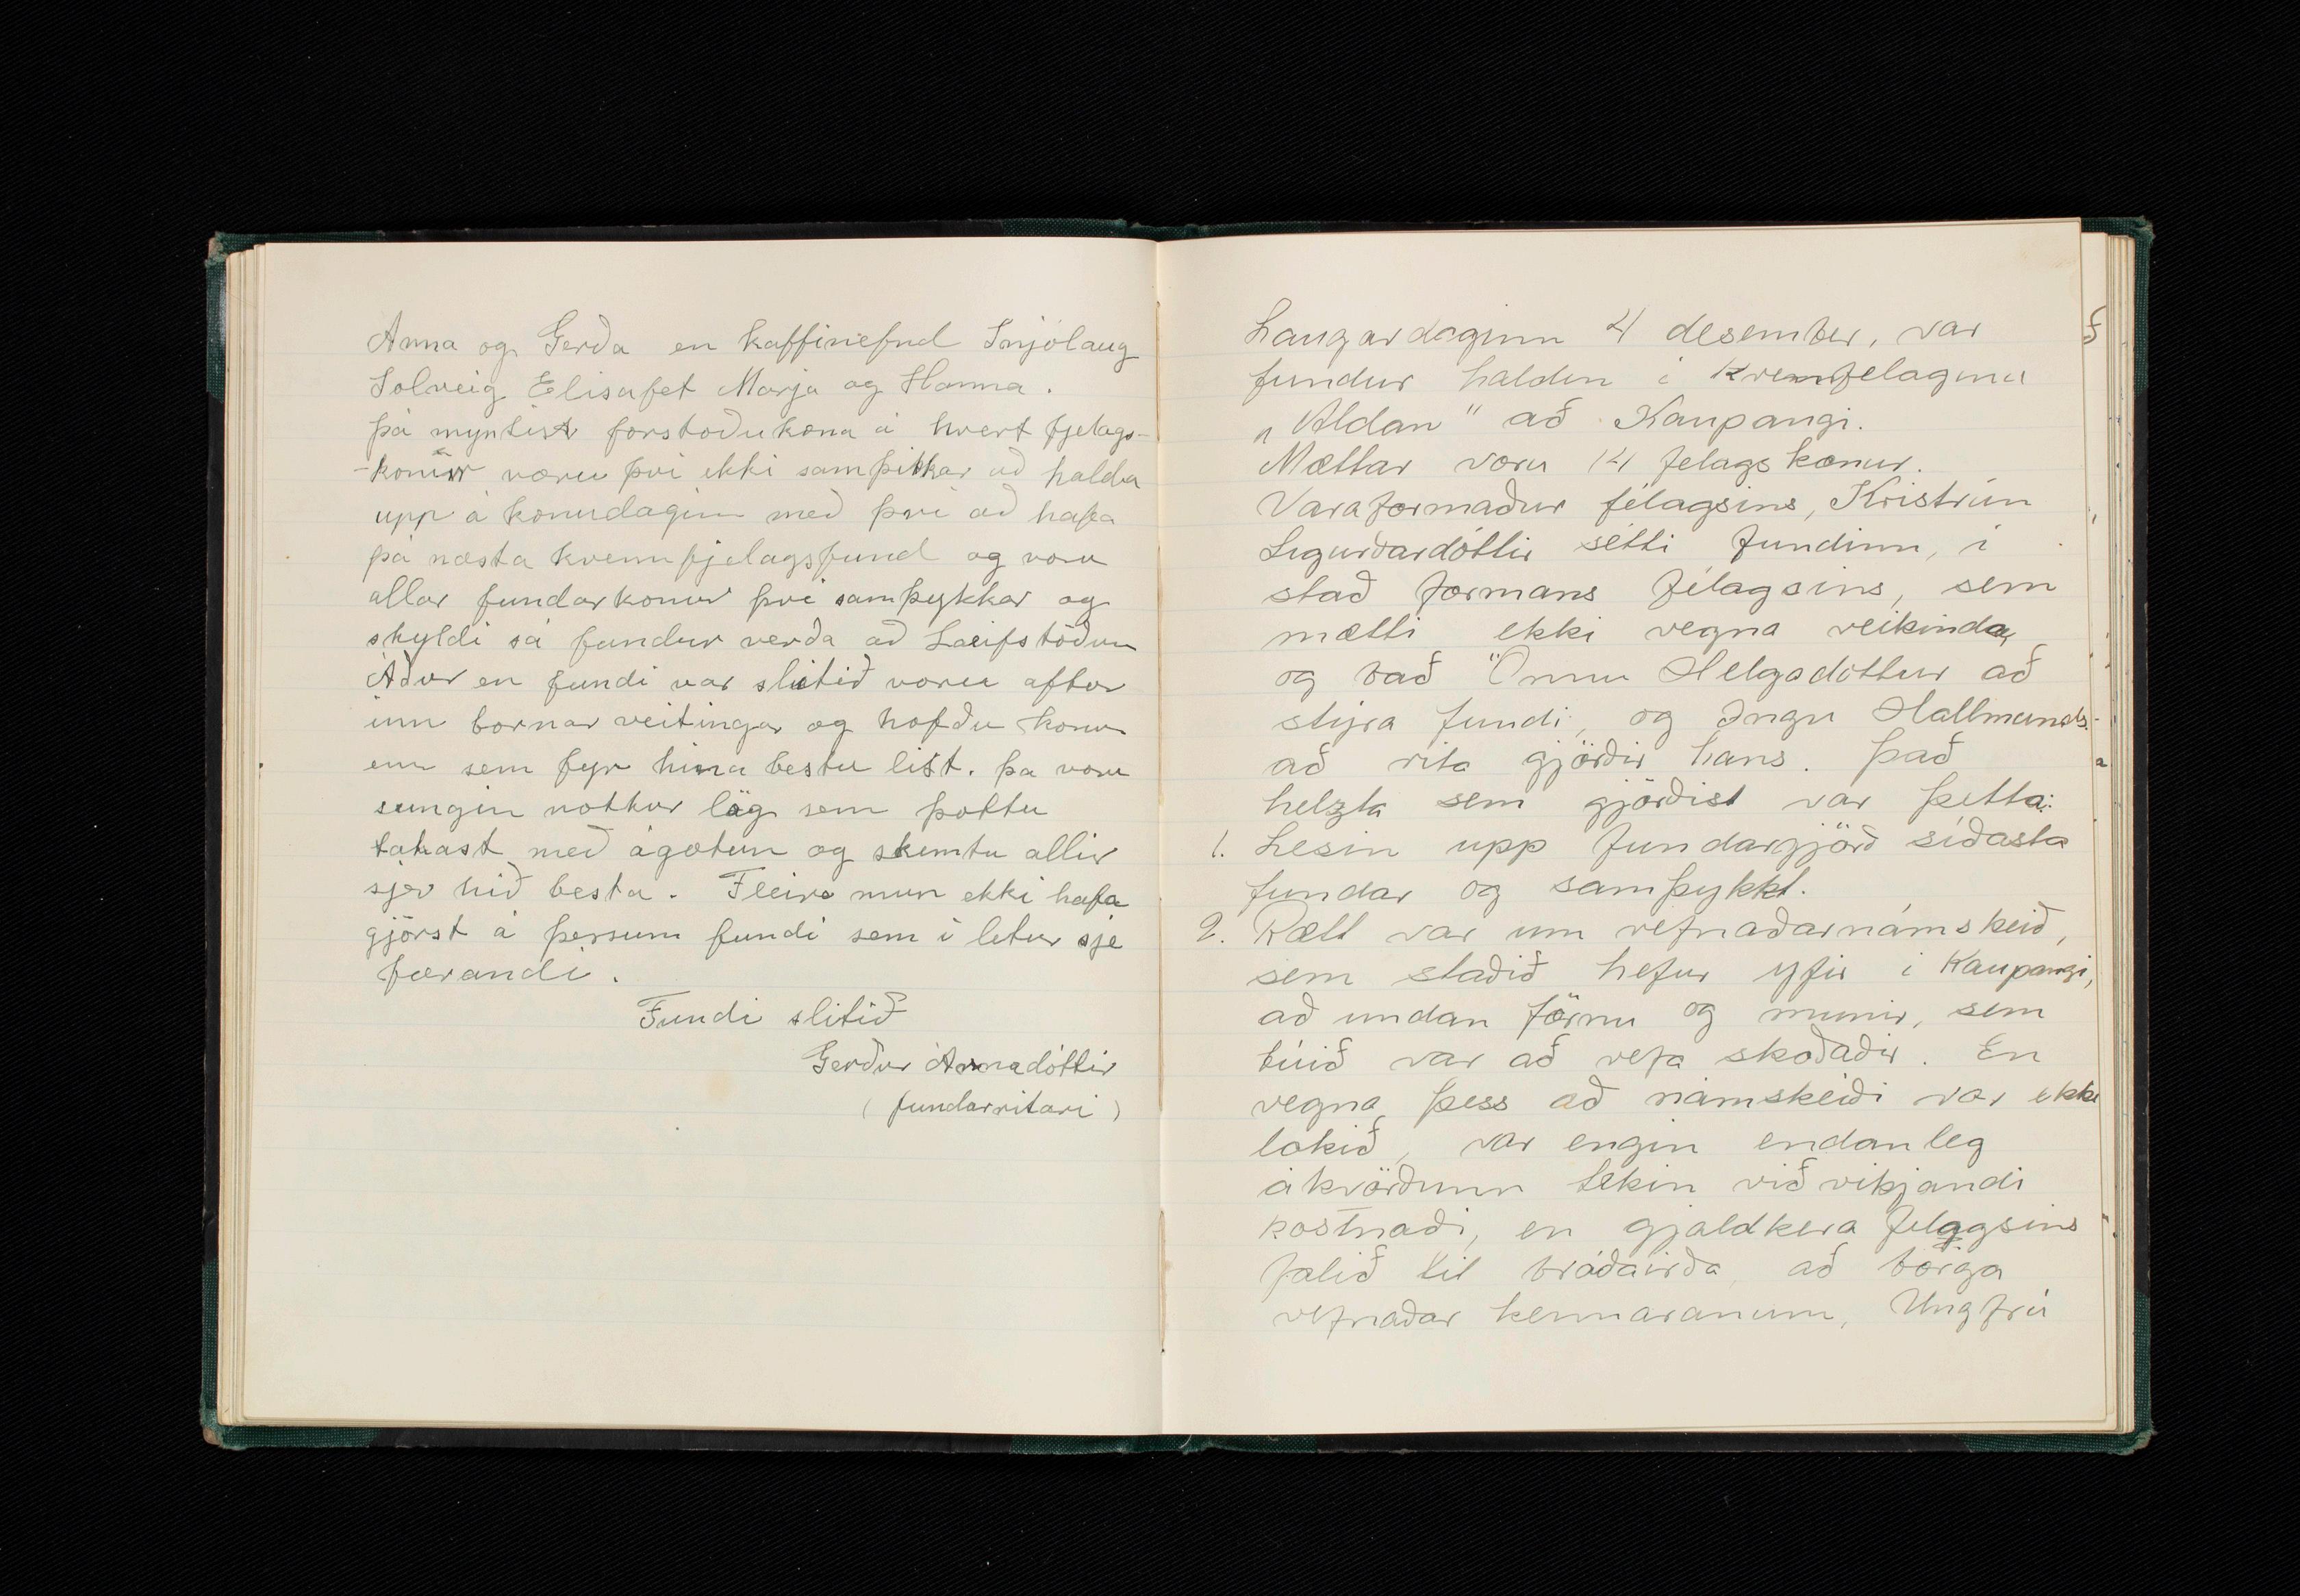 Anna og Gerða en kaffinefnd Snjólaug
Solveig Elisabet Marja og Hanna.
þá myntist forstoðukona á hvert fjelags-
-konur væru því ekki samþikkar að halda
upp á konudaginn með því að hafa
þá næsta kvennfjelagsfund og voru
allar fundarkonur því samþykkar og
skyldi sá fundur verða að Leifstöðum
Áður en fundi var slitið voru aftur
inn bornar veitingar og hofðu konur
enn sem fyr hina bestu list. þa voru
sungin nokkur lög sem þottu
takast með ágætum og skemtu allir
sjer hið besta. Fleira mun ekki hafa
gjörst á þessum fundi sem í letur sje
færandi.
Fundi slitið
Gerður Árnadóttir
(fundarritari)
Laugardaginn 4 desember, var
fundur haldin í kvennfelaginu
„Aldan" að Kaupangi.
Mættar voru 14 felags konur.
Varaformaður félagsins, Kristrún
Sigurðardóttir setti fundinn, í
stað formans félagsins, sem
mætti ekki vegna veikinda,
og bað Önnu Helgadóttur að
stýra fundi, og Ingu Hallmunds-
að rita gjörðir hans. Það
helzta sem gjörðist var þetta:
1. Lesin upp fundargjörð síðasta
fundar og samþykkt.
2. Rætt var um vefnaðarnámskeið,
sem staðið hefur yfir í Kaupangi,
að undan förnu og munir, sem
búið var að vefa skoðaðir. En
vegna þess að námskeiði var ekki
lokið, var engin endanleg
ákvörðunn tekin viðvikjandi
kostnaði, en gjaldkera felagsins
falið til bráðairða að borga
vefnaðar kennaranum, Ungfrú